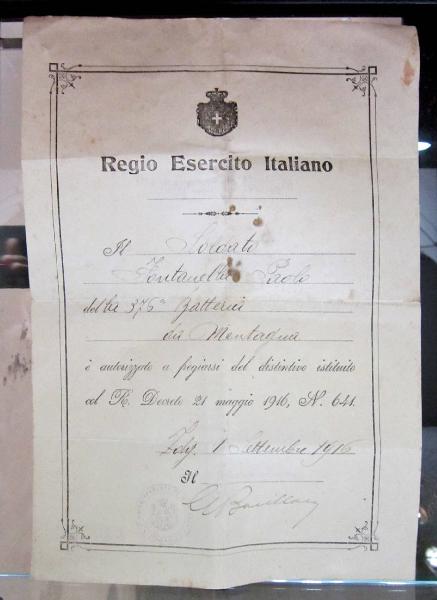 Regio Esercito Italiano
Il Soldato
Fontanella Paolo
della 376ª Batteria
da Montagna
è autorizzato a fregiarsi del distintivo istituito
col R. Decreto 21 maggio 1916, N. 641.
1 Settembre 1916
Il